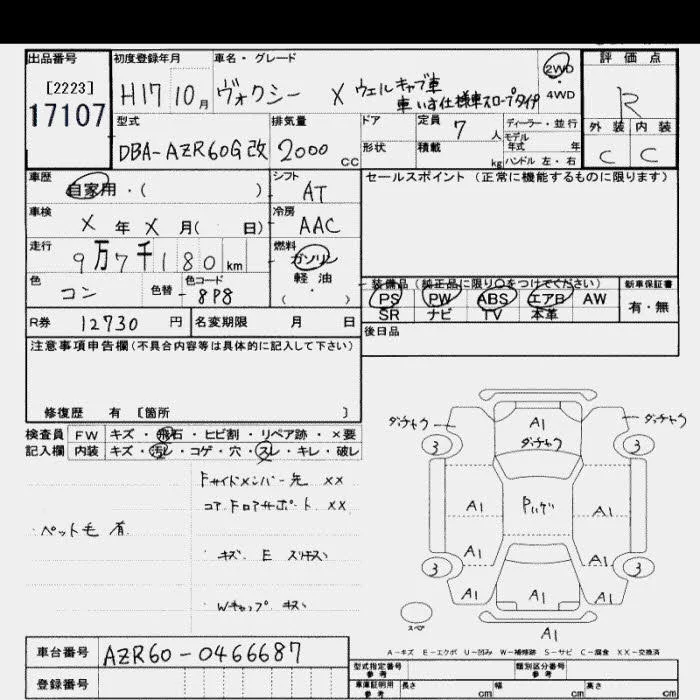 出品番号 初度登録年月 車名・グレード 2WD 評価点
[2223] H17 10月 ヴォクシー X ウェルキャブ車 4WD R
17107 車いす仕様車スロープタイプ
型式 排気量 ドア 定員 7人 ディーラー・並行 外装 内装
モデル年式 年
DBA-AZR60G改 2000cc 形状 積載 kg ハンドル 左・右 C C
車歴 自家用・( ) シフト AT セールスポイント (正常に機能するものに限ります)
車検 X年X月( 日) 冷房 AAC
走行 9万7千180km 燃料 ガソリン
軽油
( ・ )
色 コン 色替 - 色コード 8P8 装備品 (純正品に限り○をつけてください) 新車保証書
PS PW ABS エアB AW 有・無
SR ナビ TV 本革
R券 12730円 名変期限 月 日 後日品
注意事項申告欄(不具合内容等は具体的に記入して下さい)
修復歴 有 [箇所 ]
検査員 FW キズ・飛石・ヒビ割・リペア跡・×要
記入欄 内装 キズ・汚レ・コゲ・穴・スレ・キレ・破レ
Fサイドメンバー先 XX
コアFロアサポート XX
ペット毛 有
キズ E スリキズ
Wキャップ キズ
A1
3 3
A1 A1
A1 A1
3 3
A1 A1 A1
スペア A1
A-キズ E-エクボ U-凹み W-補修跡 S-サビ C-腐食 XX-交換済
車台番号 AZR60-0466687
登録番号
型式指定番号 参考 類別区分番号 参考
車庫証明用 参考 長さ cm 幅 cm 高さ cm